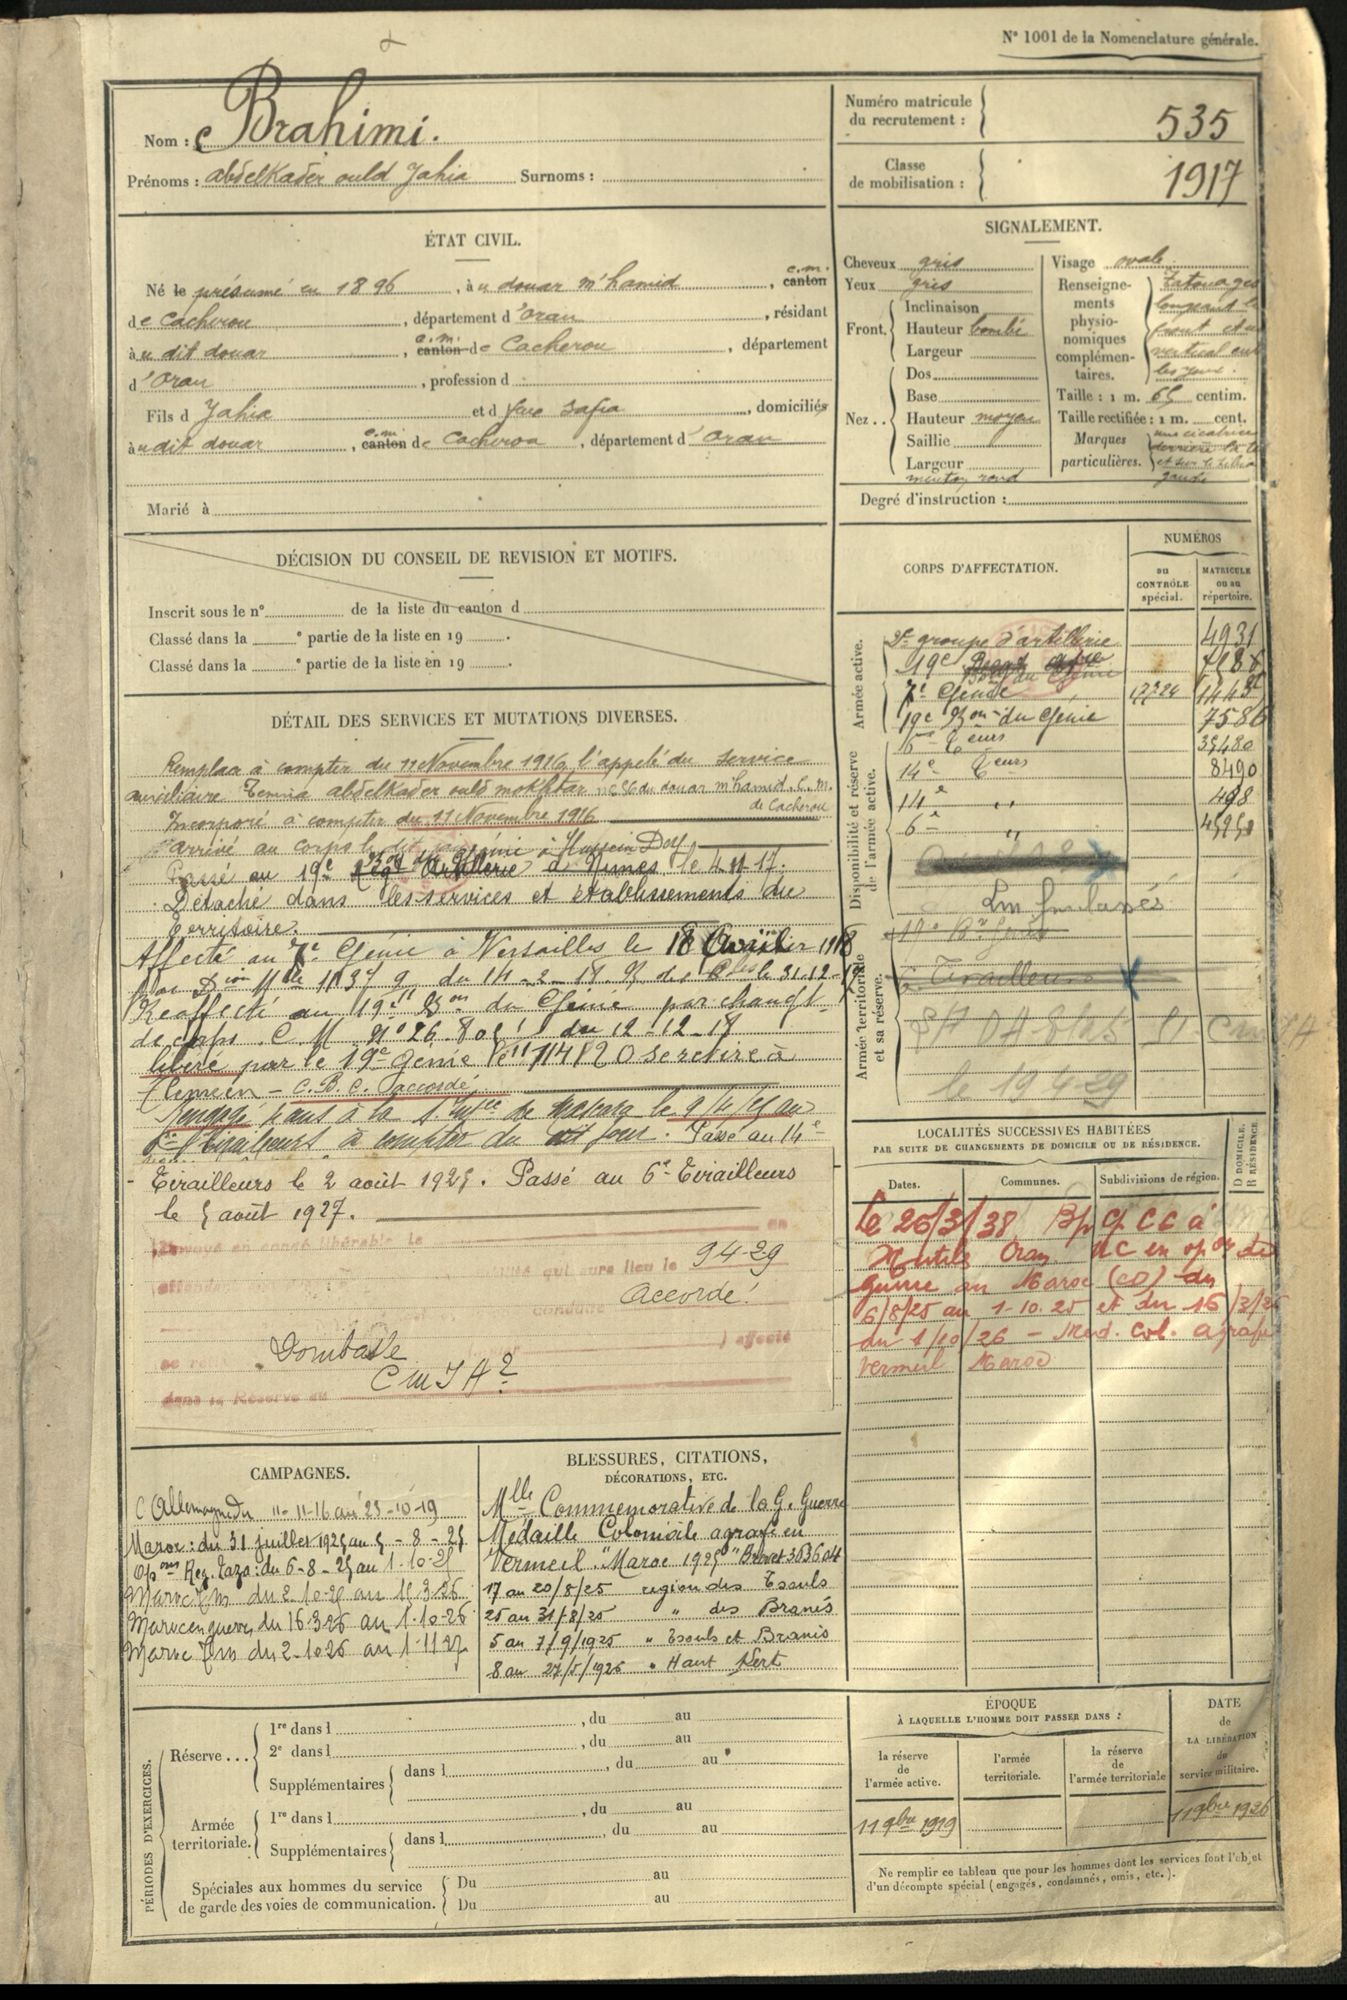 N° 1001 de la Nomenclature générale.
Nom : Brahimi.
Prénoms : abdelkader ould Jahia Surnoms :
Numéro matricule du recrutement : 535
Classe de mobilisation : 1917
ÉTAT CIVIL.
Né le présumé en 1896, à u douar m'hamid, c.m. canton
de Cacherou, département d'Oran, résidant
à u dit douar, c.m. canton de Cacherou, département
d'Oran, profession d
Fils d Jahia et d Safia, domiciliés
à u dit douar, c.m. canton de Cacherou, département d'Oran
Marié à
SIGNALEMENT.
Cheveux gris
Yeux gris
Front. Inclinaison
Hauteur bombé
Largeur
Nez.. Dos
Base
Hauteur moyen
Saillie
Largeur
menton rond
Visage ovale
Renseignements physionomiques complémentaires. tatouages
longeant le
front et un
vertical entre
les yeux.
Taille : 1 m. 65 centim.
Taille rectifiée : 1 m. cent.
Marques particulières. une cicatrice
derrière la
et sur le
gauche
Degré d'instruction :
DÉCISION DU CONSEIL DE REVISION ET MOTIFS.
Inscrit sous le n° de la liste du canton d
Classé dans la e partie de la liste en 19 .
Classé dans la e partie de la liste en 19 .
DÉTAIL DES SERVICES ET MUTATIONS DIVERSES.
Remplace à compter du 11 Novembre 1916 l'appelé du service
auxiliaire abdelkader ould mokhtar n° 56 du douar m'hamid. c. m.
de Cacherou
Incorporé à compter du 11 Novembre 1916
arrivé au corps le dit jour à Hussein Dey
Passé au 19e à Nimes le 4-11-17.
Détaché dans les services et établissements du
territoire.
Affecté au 7e Génie à Versailles le 18 1918
du 14-2-18. le 31-12-17
Réaffecté au 19e Bon du Génie par changt
de corps. C. M. n° 26.802 du 12-12-18
libéré par le 19e Génie se retire à
Tlemcen - C. B. C. accordé
Rengagé ans à la de Mascara le 9/4/25 au
6e Tirailleurs à compter du dit jour. Passé au 14e
Tirailleurs le 2 août 1925. Passé au 6e Tirailleurs
le 5 août 1927.
Envoyé en congé libérable le en
qui aura lieu le 9 4-29
conduite Accordé!
se Dombasle affecté
C M J H 2
dans la Réserve au
CORPS D'AFFECTATION.
NUMÉROS
au CONTRÔLE spécial.
MATRICULE ou au répertoire.
Armée active.
2e groupe d'artillerie 4931
19e Bon du Génie
7e Génie 17724
19e Bon du Génie 7586
Disponibilité et réserve de l'armée active.
6e Teurs 35480
14e Teurs 8490
14e " 498
6e " 45950
Armée territoriale et sa réserve.
Tirailleurs
le 19 4-29
LOCALITÉS SUCCESSIVES HABITÉES
PAR SUITE DE CHANGEMENTS DE DOMICILE OU DE RÉSIDENCE.
Dates.
Communes.
Subdivisions de région.
DOMICILE. RÉSIDENCE.
Le 26/3/38 CC à
Mutilés Oran. AC en opon de
guerre au Maroc (CD) du
6/8/25 au 1-10-25 et du 16/3/26
au 1/10/26 - Med. Col. agrafe
Vermeil Maroc
CAMPAGNES.
C Allemagne du 11-11-16 au 23-10-19
Maroc : du 31 juillet 1925 au 5-8-25
Opons Reg. Taza : du 6-8-25 au 1-10-25
Maroc du 2-10-25 au 15-3-26
Maroc en guerre du 16-3-26 au 1-10-26
Maroc du 2-10-26 au 1-11-27
BLESSURES, CITATIONS,
DÉCORATIONS, ETC.
Mlle Commémorative de la G. Guerre
Médaille Coloniale agrafe en
Vermeil "Maroc 1925" Brevet 303604
17 au 20/8/25 région des Tsouls
25 au 31/8/25 " des Branès
5 au 7/9/1925 " Tsouls et Branis
8 au 27/5/1926 " Haut Kert
PÉRIODES D'EXERCICES.
Réserve ...
1re dans l , du au
2e dans l , du au
Supplémentaires dans l , du au
Armée territoriale.
1re dans l , du au
Supplémentaires dans l , du au
Spéciales aux hommes du service de garde des voies de communication.
Du au
Du au
ÉPOQUE
À LAQUELLE L'HOMME DOIT PASSER DANS :
la réserve de l'armée active.
l'armée territoriale.
la réserve de l'armée territoriale
DATE de LA LIBÉRATION du service militaire.
11 9bre 1919
11 9bre 1926
Ne remplir ce tableau que pour les hommes dont les services font l'objet
d'un décompte spécial (engagés, condamnés, omis, etc.).